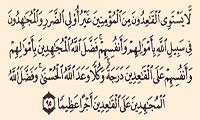 لَّا يَسْتَوِى ٱلْقَٰعِدُونَ مِنَ ٱلْمُؤْمِنِينَ غَيْرُ أُو۟لِى ٱلضَّرَرِ وَٱلْمُجَٰهِدُونَ
فِى سَبِيلِ ٱللَّهِ بِأَمْوَٰلِهِمْ وَأَنفُسِهِمْ ۚ فَضَّلَ ٱللَّهُ ٱلْمُجَٰهِدِينَ بِأَمْوَٰلِهِمْ
وَأَنفُسِهِمْ عَلَى ٱلْقَٰعِدِينَ دَرَجَةً ۚ وَكُلًّا وَعَدَ ٱللَّهُ ٱلْحُسْنَىٰ ۚ وَفَضَّلَ ٱللَّهُ
ٱلْمُجَٰهِدِينَ عَلَى ٱلْقَٰعِدِينَ أَجْرًا عَظِيمًا ٩٥